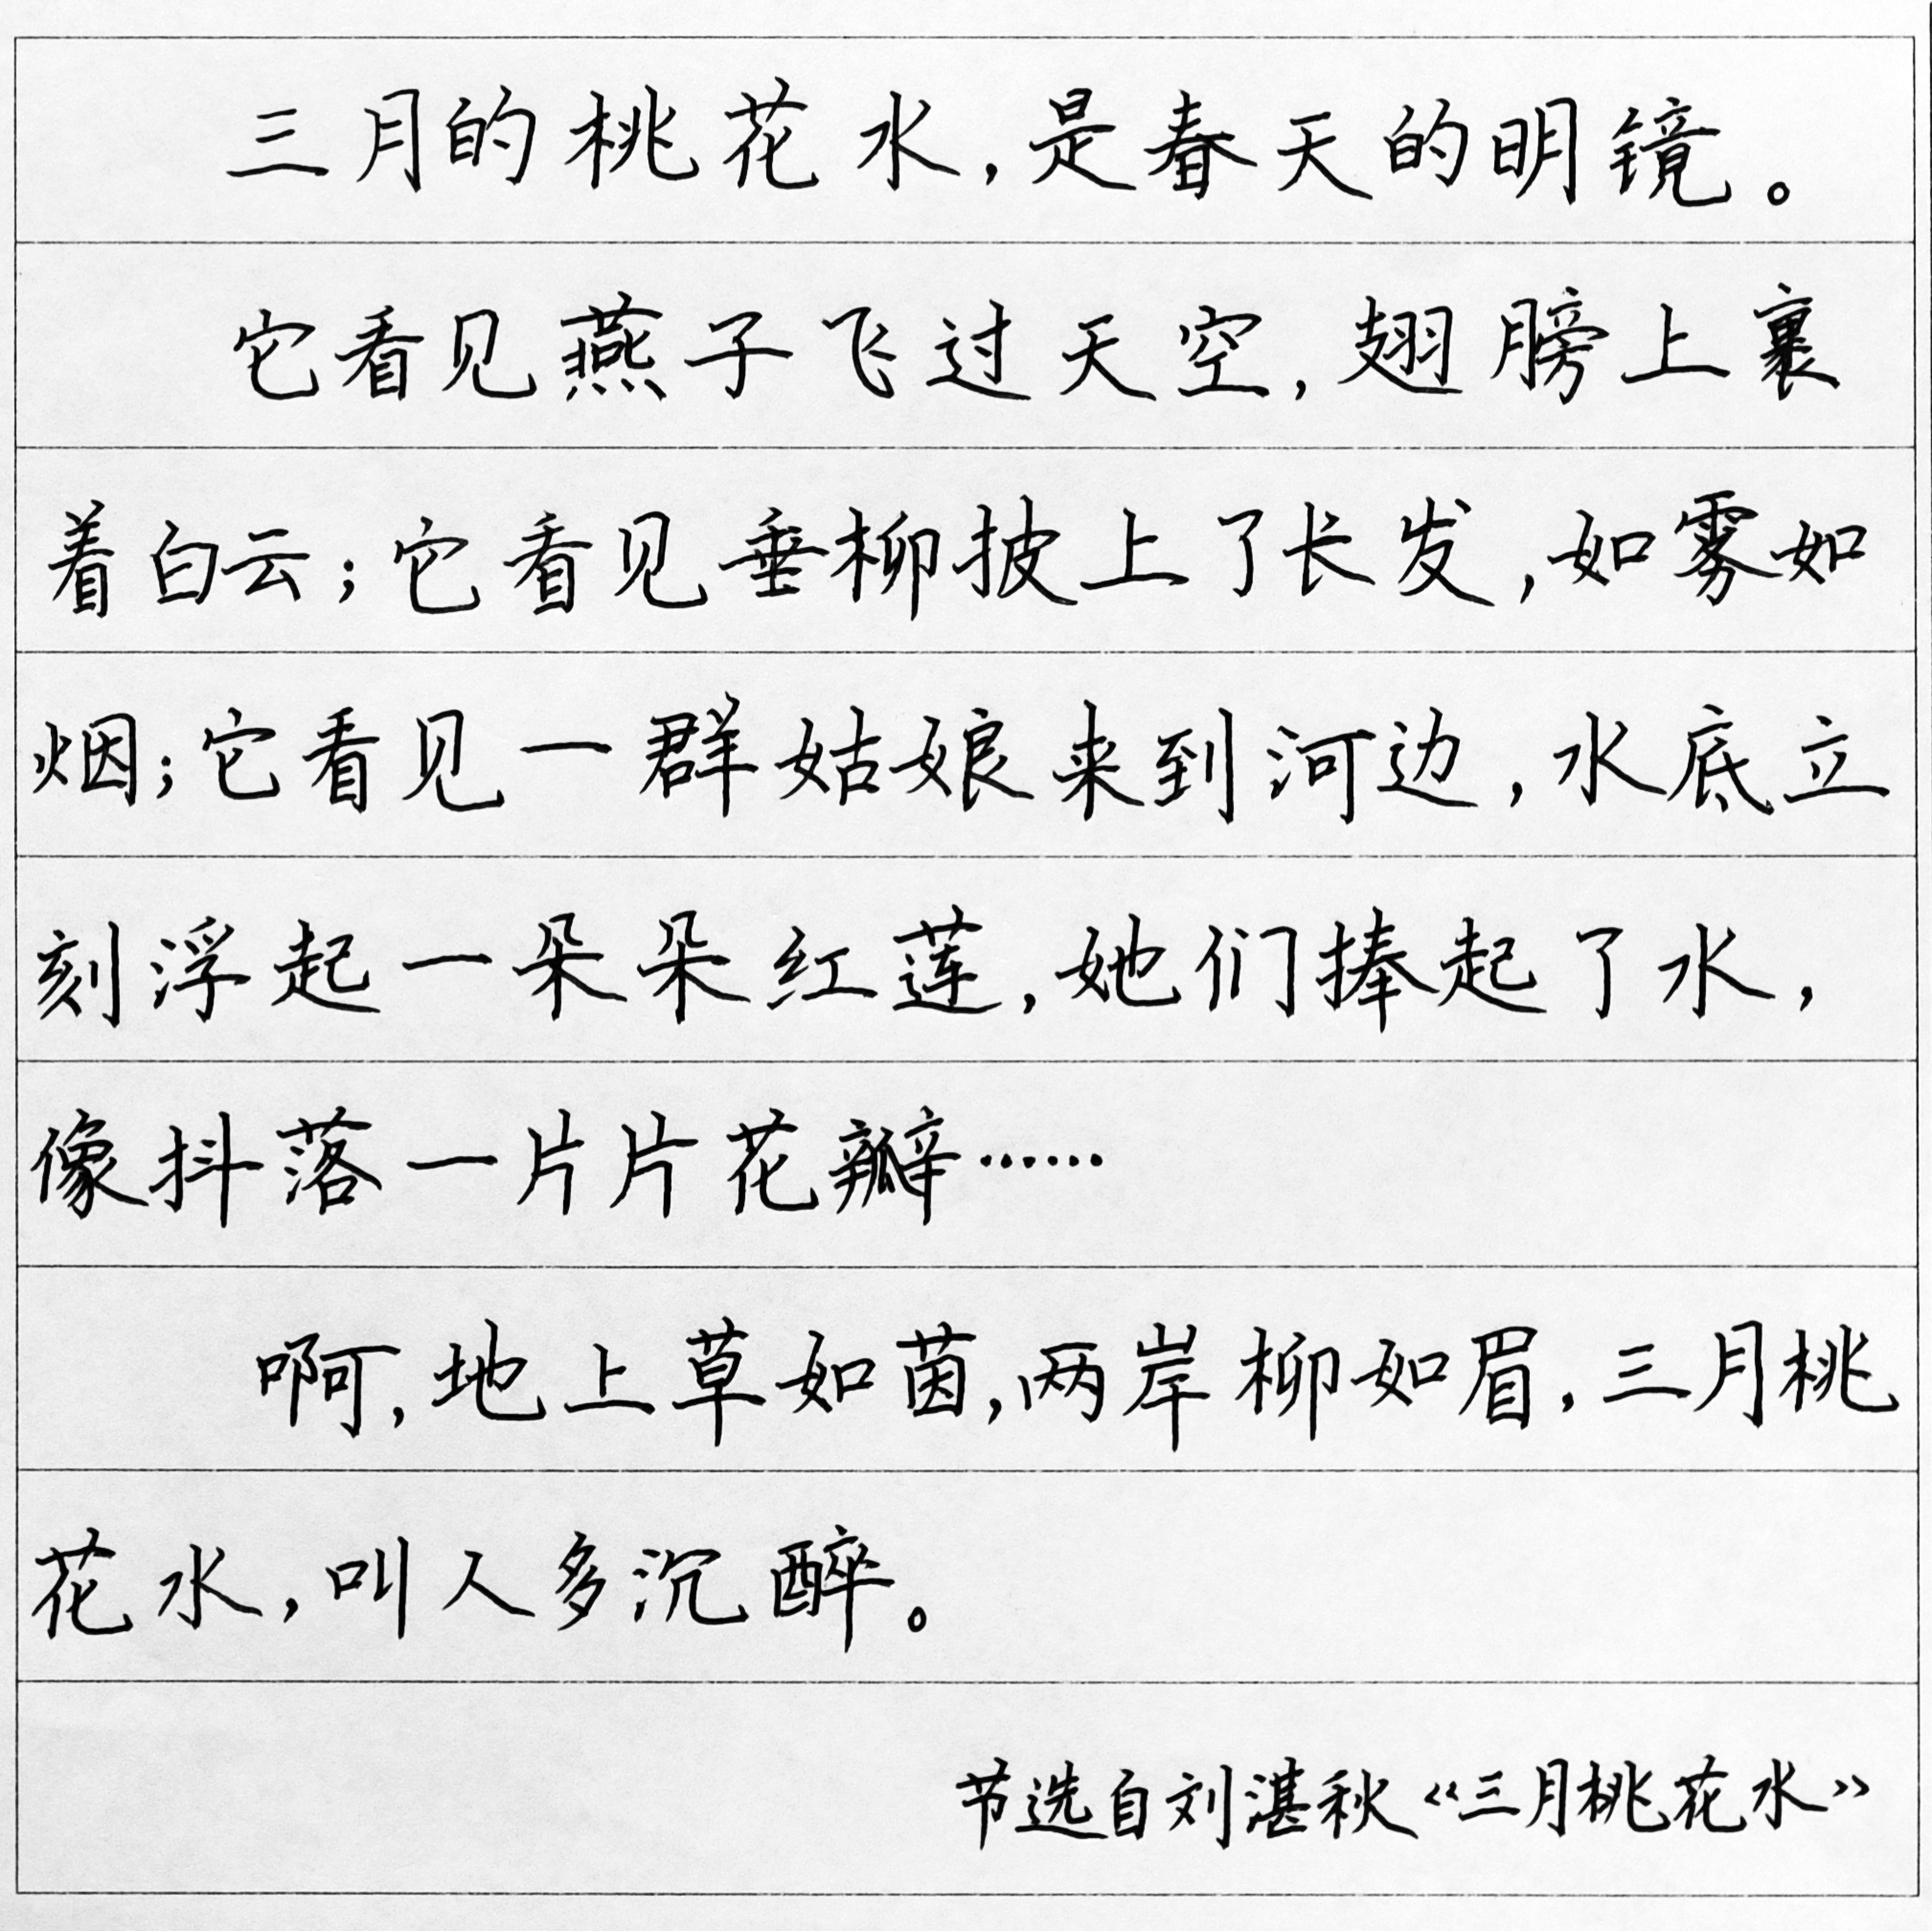 三月的桃花水,是春天的明镜。
它看见燕子飞过天空,翅膀上裹
着白云;它看见垂柳披上了长发,如雾如
烟;它看见一群姑娘来到河边,水底立
刻浮起一朵朵红莲,她们捧起了水,
像抖落一片片花瓣……
啊,地上草如茵,两岸柳如眉,三月桃
花水,叫人多沉醉。
节选自刘湛秋《三月桃花水》